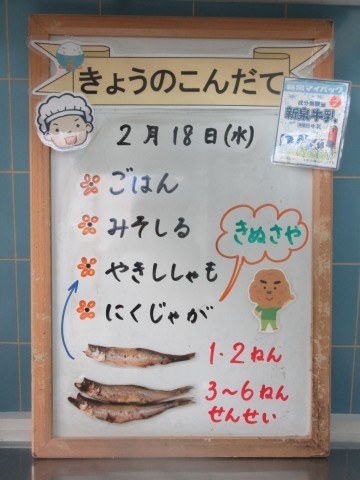 きょうのこんだて
2月18日(水)
ごはん
みそしる
やきししゃも
にくじゃが
きぬさや
1・2ねん
3～6ねん
せんせい
新泉牛乳